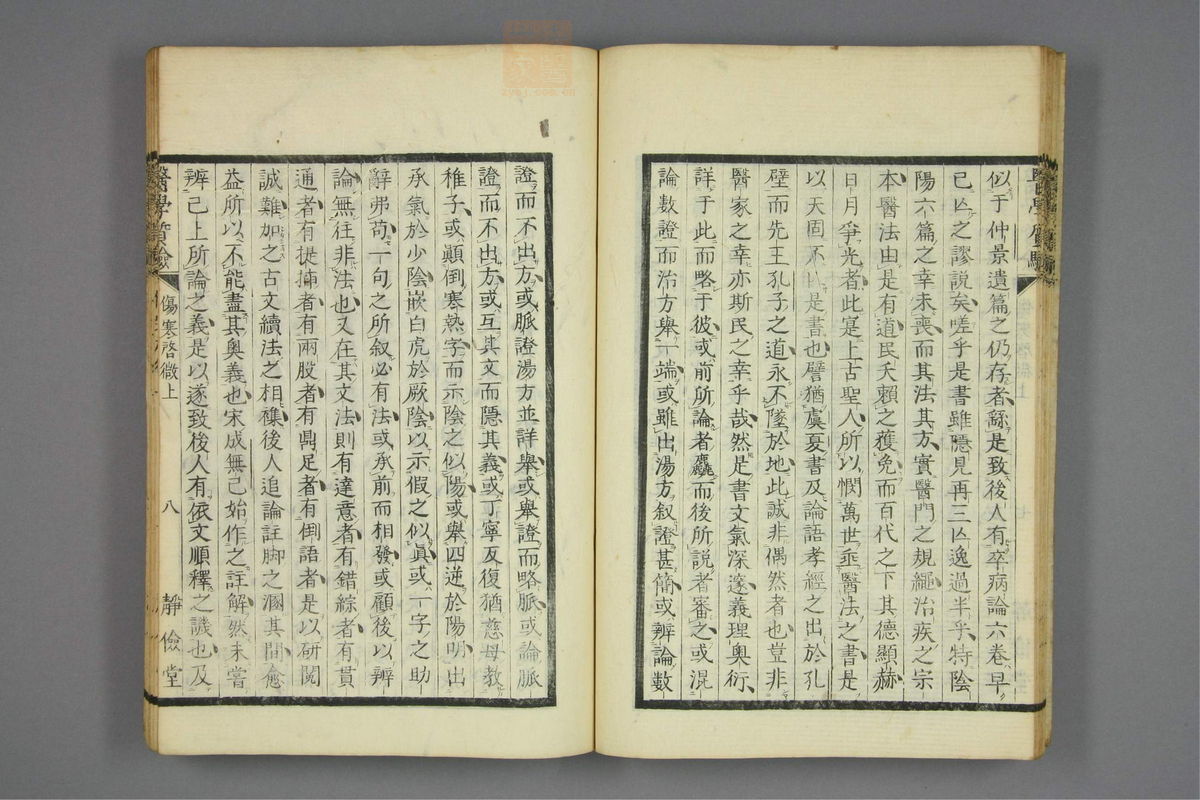 似于仲景遺篇之仍存者繇是致後人有卒病論六卷早
已亾之謬説矣嗟乎是書雖隱見再三亾逸過半乎特陰
陽六篇之幸未喪而其法其方實醫門之規繩治疾之宗
本醫法由是有道民夭賴之獲免而百代之下其德顯赫
日月爭光者此寔上古聖人所以憫萬世垂醫法之書是
以天固不以是書也譬猶虞夏書及論語孝經之出於孔
壁而先王孔子之道永不墜於地此誠非偶然者也豈非
醫家之幸亦斯民之幸乎哉然是書文氣深邃義理奧衍
詳于此而略于彼或前所論者麤而後所説者審之或混
論數證而治方舉一端或雖出湯方叙證甚簡或辨論數
證而不出方或脈證湯方並詳舉或舉證而略脈或論脈
證而不出方或互其文而隱其義或丁寧反復猶慈母教
稚子或顛倒寒熱字而示陰之似陽或舉四逆於陽明出
承氣於少陰嵌白虎於厥陰以示假之似眞或一字之助
辭弗苟一句之所叙必有法或承前而相發或顧後以辨
論無往非法也又在其文法則有達意者有錯綜者有貫
通者有提掇者有兩股者有鼎足者有倒語者是以研閲
誠難加之古文續法之相襍後人追論註脚之溷其間愈
益所以不能盡其奧義也宋成無己始作之註解然未嘗
辨己上所論之義是以遂致後人有依文順釋之譏也及
醫學質驗
傷寒啓微上
八
靜儉堂